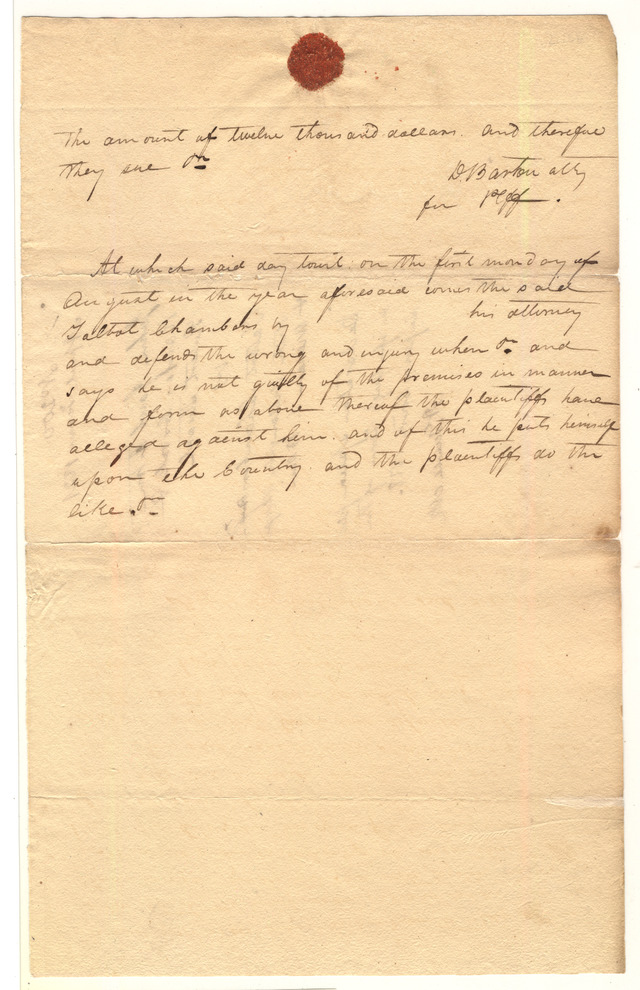 the amount of twelve thousand dollars. and therefore
they sue &c
D. Barton atty
for Plff.
At which said day towit: on the first monday of
August in the year aforesaid comes the said
Talbot Chambers by his attorney
and defends the wrong and injury when &c and
says he is not guilty of the premises in manner
and form as above thereof the plaintiffs have
alleged against him. and of this he puts himself
upon the Country. and the plaintiffs do the
like &c